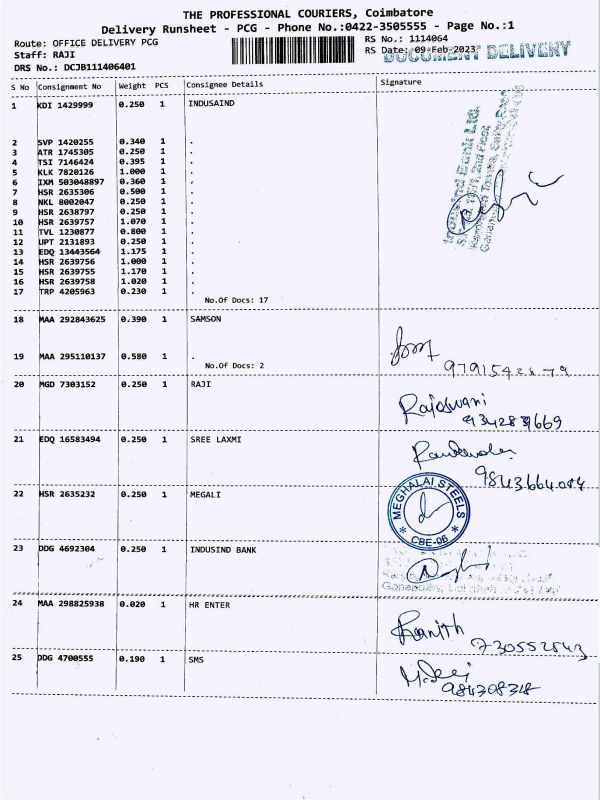 THE PROFESSIONAL COURIERS, Coimbatore
Delivery Runsheet - PCG - Phone No.:0422-3505555 - Page No.:1
Route: OFFICE DELIVERY PCG
Staff: RAJI
DRS No.: DCJB111406401
RS No.: 1114064
RS Date: 09-Feb-2023
DOCUMENT DELIVERY
S No Consignment No Weight PCS Consignee Details Signature
1 KDI 1429999 0.250 1 INDUSAIND
2 SVP 1420255 0.340 1 .
3 ATR 1745305 0.250 1 .
4 TSI 7146424 0.395 1 .
5 KLK 7820126 1.000 1 .
6 IXM 503048897 0.360 1 .
7 HSR 2635306 0.500 1 .
8 NKL 8002047 0.250 1 .
9 HSR 2638797 0.250 1 .
10 HSR 2639757 1.070 1 .
11 TVL 1230877 0.800 1 .
12 UPT 2131893 0.250 1 .
13 EDQ 13443564 1.175 1 .
14 HSR 2639756 1.000 1 .
15 HSR 2639755 1.170 1 .
16 HSR 2639758 1.020 1 .
17 TRP 4205963 0.230 1 .
No.Of Docs: 17
IndusInd Bank Ltd.
2nd Floor
18 MAA 292843625 0.390 1 SAMSON
19 MAA 295110137 0.580 1 .
No.Of Docs: 2
20 MGD 7303152 0.250 1 RAJI
Rajeswani
21 EDQ 16583494 0.250 1 SREE LAXMI
22 HSR 2635232 0.250 1 MEGALI
MEGHALAI STEELS
CBE-06
23 DDG 4692304 0.250 1 INDUSIND BANK
24 MAA 298825938 0.020 1 HR ENTER
Ranith
730552543
25 DDG 4700555 0.190 1 SMS